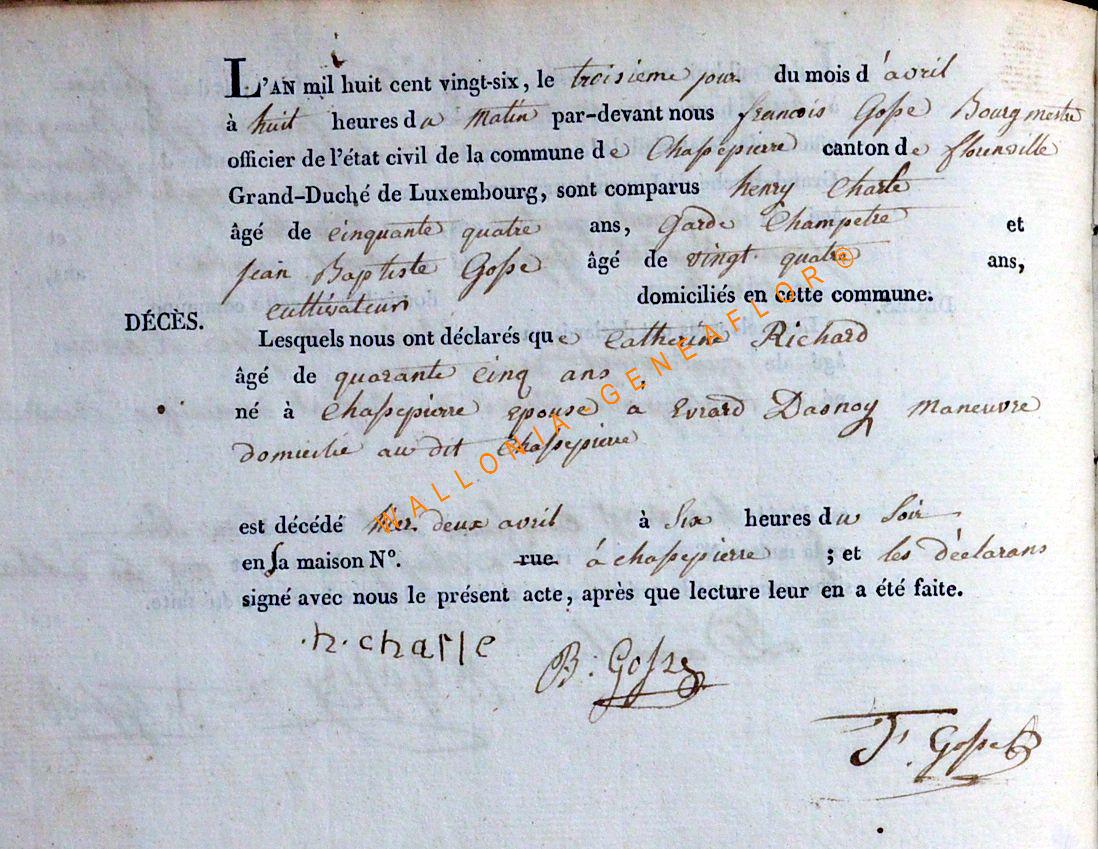 L'AN mil huit cent vingt-six, le troisieme jour du mois d'avril
à huit heures du Matin par-devant nous francois Gosse Bourgmestre
officier de l'état civil de la commune de Chassepierre canton de florenville
Grand-Duché de Luxembourg, sont comparus henry Charle
âgé de cinquante quatre ans, Garde Champetre et
Jean Baptiste Gosse âgé de vingt quatre ans,
cultivateur domiciliés en cette commune.
DÉCÈS.
Lesquels nous ont déclarés que Catherine Richard
âgé de quarante cinq ans,
né à Chassepierre epouse a Evrard Dasnoy maneuvre
domicilié au dit Chassepierre
est décédé hier deux avril à Six heures du Soir
en sa maison N°. rue à chassepierre ; et les déclarans
signé avec nous le présent acte, après que lecture leur en a été faite.
h. charle
B. Gosse
F. Gosse
WALLONIA-GENEAFLOR ®